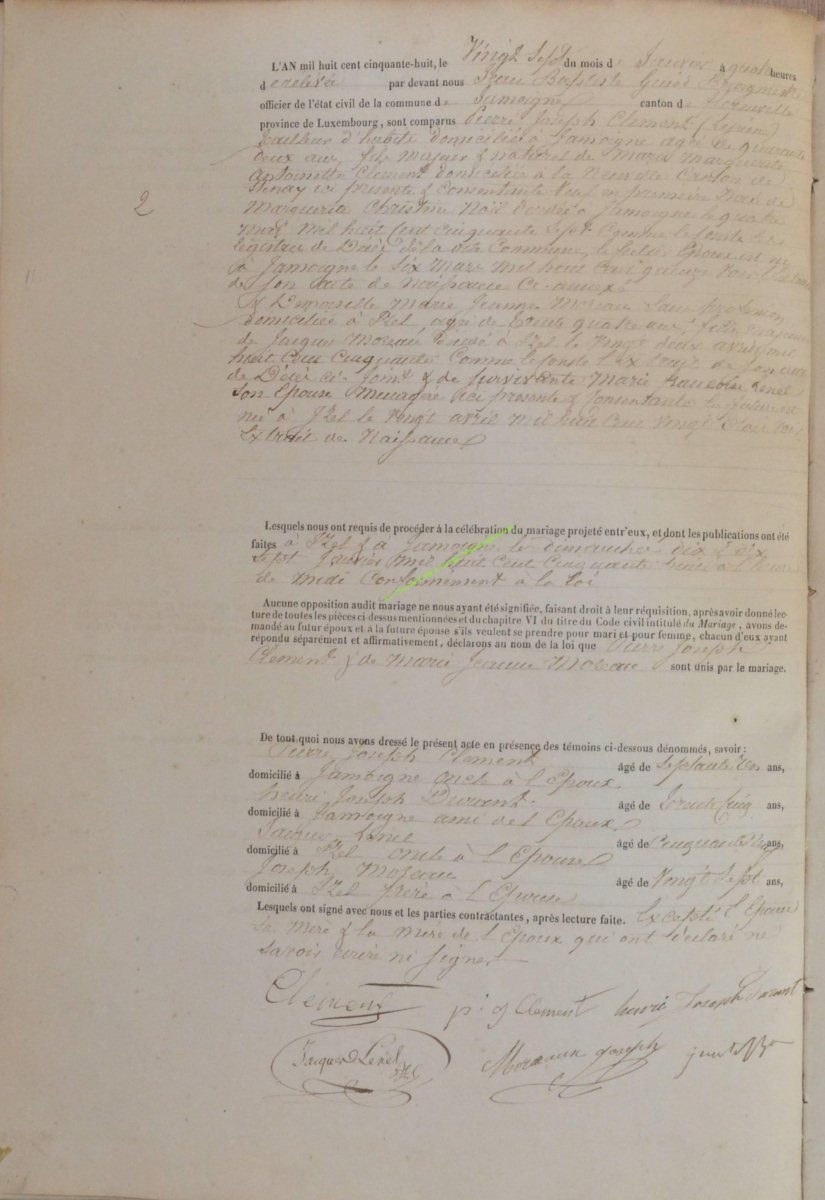 2
L'AN mil huit cent cinquante-huit, le Vingt Sept du mois de Janvier à quatre heures
d e relevée par devant nous Jean Baptiste
officier de l'état civil de la commune de Jamoigne canton de Florenville
province de Luxembourg, sont comparus Pierre Joseph Clement
tailleur d'habits domicilié à Jamoigne agé de quarante
deux ans, fils majeur & naturel de Marguerite
Antoinette Clement domiciliée à la Neuville Canton de
Stenay ici presente & Consentante Veuf en premiere Noce de
Marguerite Christine Noël decédée à Jamoigne le quatre
Mars Mil huit Cent Cinquante Sept Comme le conste les
registres de Décès de la dite Commune, le futur Epoux est né
à Jamoigne le Six Mars Mil huit Cent quinze
de son acte de Naissance Ci annexé
& Demoiselle Marie Jeanne Moreau Sans profession
domiciliée à Izel agée de trente quatre ans, fille majeure
de Jacques Moreau décédé à Izel le Vingt deux avril mil
huit Cent Cinquante Comme le conste l'extrait de son acte
de Décès ci-joint & de survivante Marie Francoise Lenel
son Epouse Menagère ici presente & consentante la future est
née à Izel le Vingt avril Mil huit Cent Vingt trois
Extrait de Naissance
Lesquels nous ont requis de procéder à la célébration du mariage projeté entr'eux, et dont les publications ont été
faites à Izel & à Jamoigne les dimanches dix & dix
Sept Janvier Mil huit Cent Cinquante huit à l'heure
de midi Conformement à la loi
Aucune opposition audit mariage ne nous ayant été signifiée, faisant droit à leur réquisition, après avoir donné lec-
ture de toutes les pièces ci-dessus mentionnées et du chapitre VI du titre du Code civil intitulé du Mariage, avons de-
mandé au futur époux et à la future épouse s'ils veulent se prendre pour mari et pour femme, chacun d'eux ayant
répondu séparément et affirmativement, déclarons au nom de la loi que Pierre Joseph
Clement & de Marie Jeanne Moreau sont unis par le mariage.
De tout quoi nous avons dressé le présent acte en présence des témoins ci-dessous dénommés, savoir :
Pierre Joseph Clement âgé de Septante Un ans,
domicilié à Jamoigne oncle à l'Epoux
henri Joseph Durant âgé de Trente Cinq ans,
domicilié à Jamoigne ami de l'Epoux
Jacques Lenel âgé de Cinquante ans,
domicilié à Izel oncle à l'Epouse
Joseph Moreau âgé de Vingt Sept ans,
domicilié à Izel frère à l'Epouse
Lesquels ont signé avec nous et les parties contractantes, après lecture faite. Excepté l'Epouse
sa Mère & la mère de l'Epoux qui ont déclaré ne
savoir écrire ni signer
Clément p. j Clement henri Joseph Durant
Jacques Lenel Moreaux joseph